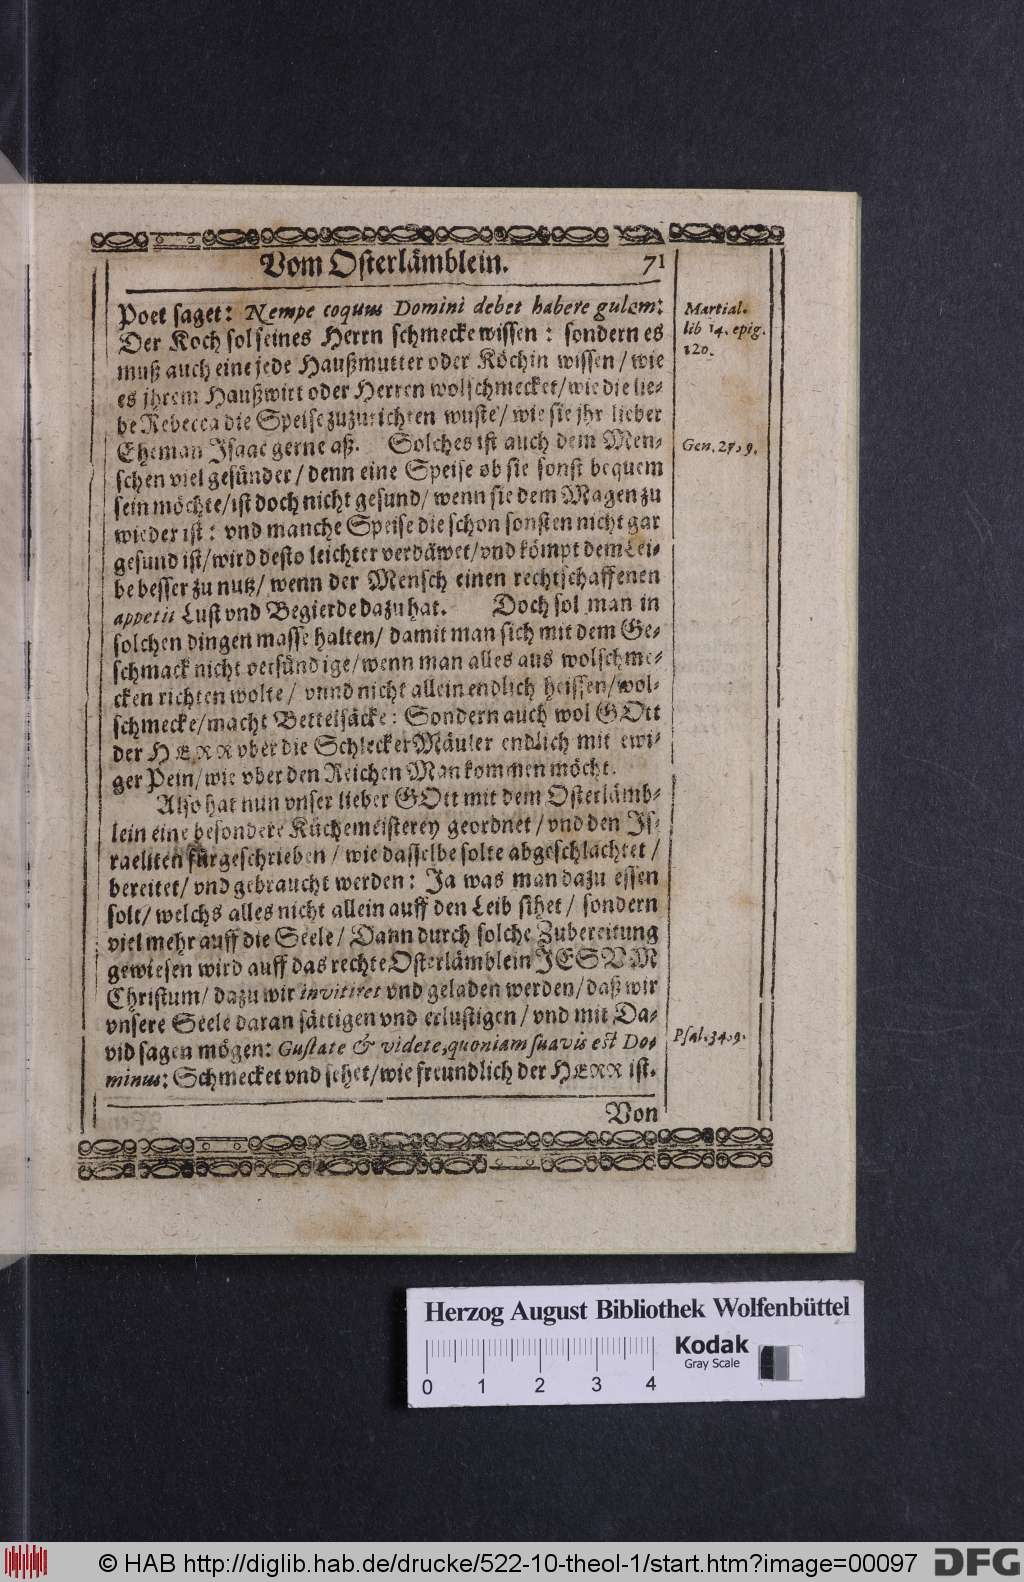 Vom Osterlämblein. 71
Poet saget: Nempe coquus Domini debet habere gulam:
Der Koch sol seines Herrn schmecke wissen: sondern es
muß auch eine jede Haußmutter oder Köchin wissen / wie
es jhrem Haußwirt oder Herren wolschmecket / wie die lie-
be Rebecca die Speise zuzurichten wuste / wie sie jhr lieber
Eheman Isaac gerne aß. Solches ist auch dem Men-
schen viel gesünder / denn eine Speise ob sie sonst bequem
sein möchte / ist doch nicht gesund / wenn sie dem Magen zu
wieder ist: vnd manche Speise die schon sonsten nicht gar
gesund ist / wird desto leichter verdäwet / vnd kömpt dem Lei-
be besser zu nutz / wenn der Mensch einen rechtschaffenen
appetit Lust vnd Begierde dazu hat. Doch sol man in
solchen dingen masse halten / damit man sich mit dem Ge-
schmack nicht versündige / wenn man alles aus wolschme-
cken richten wolte / vnnd nicht allein endlich heissen / wol-
schmecke / macht Bettelsäcke: Sondern auch wol GOtt
der HERR vber die SchleckerMäuler endlich mit ewi-
ger Pein / wie vber den Reichen Man kommen möcht.
Also hat nun vnser lieber GOtt mit dem Osterlämb-
lein eine besondere Küchemeisterey geordnet / vnd den Is-
raeliten fürgeschrieben / wie dasselbe solte abgeschlachtet /
bereitet / vnd gebraucht werden: Ja was man dazu essen
solt / welchs alles nicht allein auff den Leib sihet / sondern
viel mehr auff die Seele / Dann durch solche Zubereitung
gewiesen wird auff das rechte Osterlämblein JESVM
Christum / dazu wir invitiret vnd geladen werden / daß wir
vnsere Seele daran sättigen vnd erlustigen / vnd mit Da-
vid sagen mögen: Gustate & videte, quoniam suavis est Do-
minus: Schmecket vnd sehet / wie freundlich der HERR ist.
Von
Martial.
lib 14. epig.
220.
Gen. 27, 9.
Psal. 34. 9.
Herzog August Bibliothek Wolfenbüttel
Kodak
Gray Scale
0 1 2 3 4
© HAB http://diglib.hab.de/drucke/522-10-theol-1/start.htm?image=00097
DFG